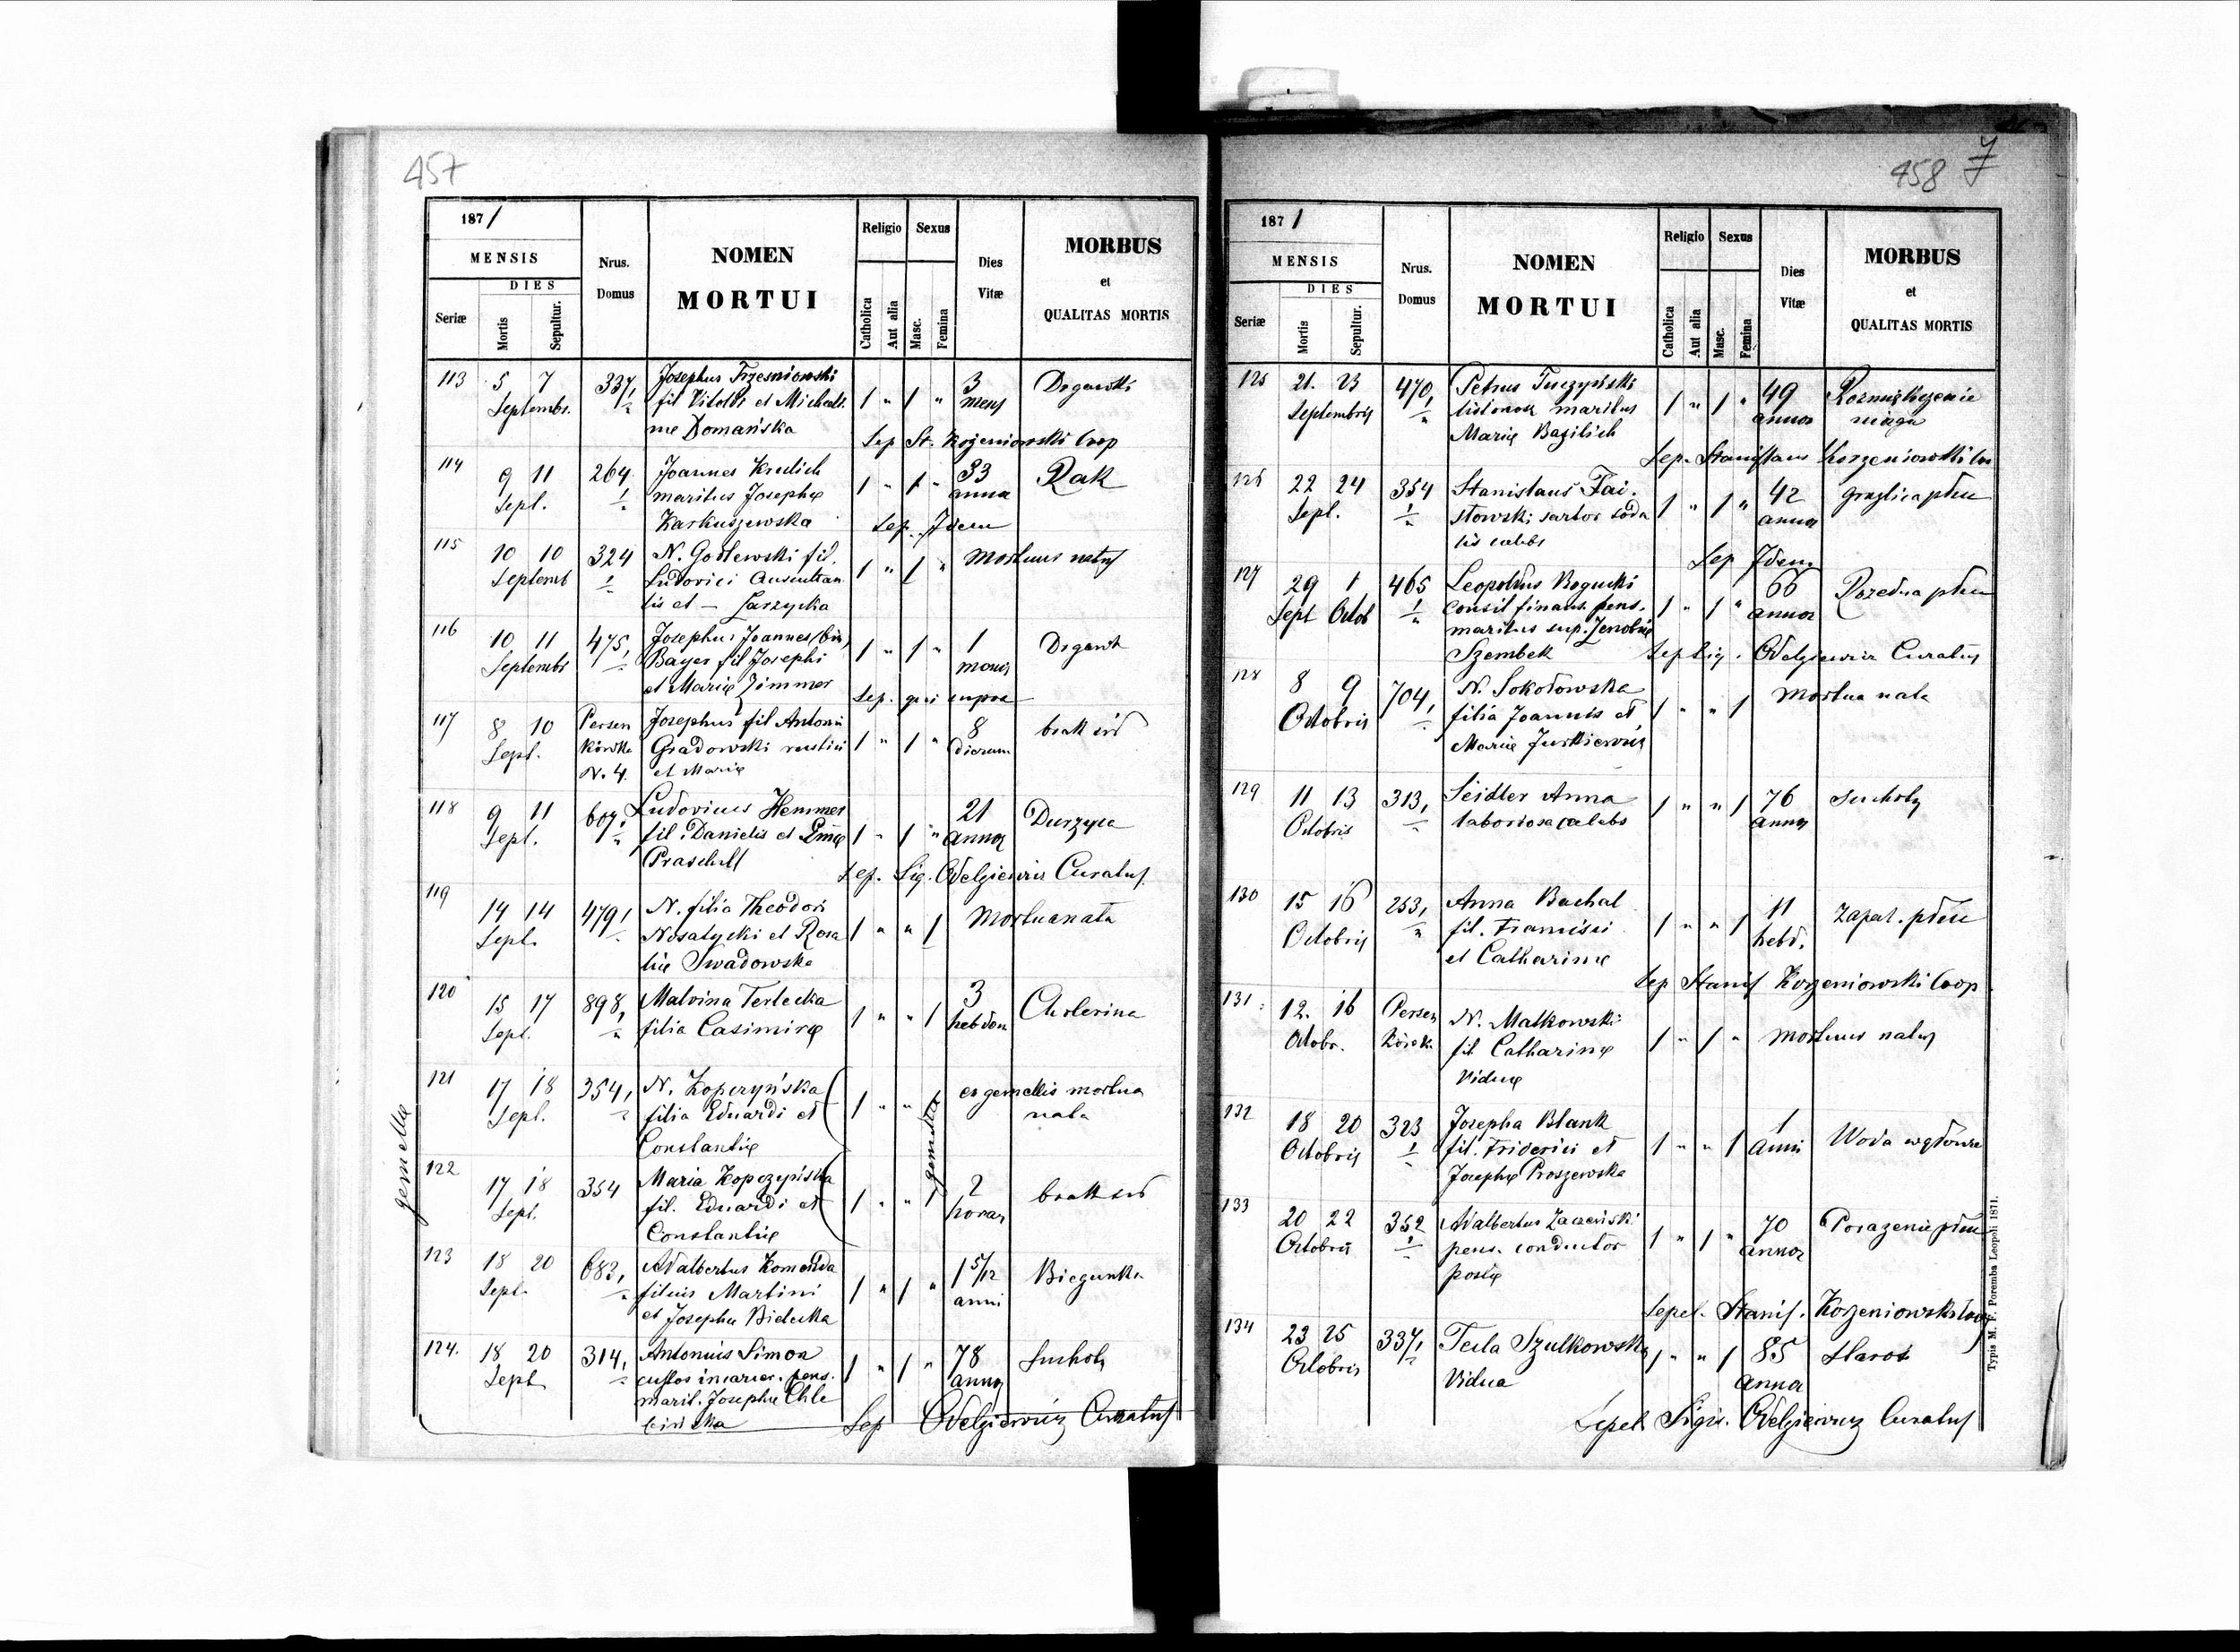 457
187/
MENSIS
DIES
Seriæ
Mortis
Sepultur.
Nrus.
Domus
NOMEN
MORTUI
Religio
Catholica
Aut alia
Sexus
Masc.
Femina
Dies
Vitæ
MORBUS
et
QUALITAS MORTIS
113 5 7 337/1 Josephus Trzesniowski 1 " 1 " 3 Drgawki
Septembr. fil Vitoldi et Michali. mens
næ Domańska Sep St. Kojeniowski Coop
114 9 11 264 Joannes Krulich 1 " 1 " 33 Rak
Sept. maritus Josephæ anno
Karkuszewska Sep. Idem
115 10 10 324 N. Godlewski fil. 1 " 1 " Mortuus natus
Septemb Ludovici Auscultan
tis et — Zarzycka
116 10 11 475, Josephus Joannes (bin) 1 " 1 " 1 Drgawk
Septembr Bayer fil Josephi mensis
et Mariæ Zimmer Sep. qui supra
117 8 10 Persen Josephus fil Antonii 1 " 1 " 8 brak sił
Sept. kówka Gradowski rustici dierum
N. 4. et Mariæ
118 9 11 607, Ludovicus Hemmer 1 " 1 " 21
Sept. fil. Danielis et annor
Sep. Sig. Odelgiewicz Curatus
119 14 14 479, N. filia Theodori 1 " " 1 Mortua nata
Sept. Nosatycki et Rosa
liæ Swadowska
120 15 17 898, Malvina Terlecka 1 " " 1 3 Cholerina
Sept. filia Casimiræ hebdom
gemella
121 17 18 354, N. Kopczyńska 1 " " 1 ex gemellis mortua
Sept. filia Eduardi et nata
Constantiæ
gemella
122 17 18 354 Maria Kopczyńska 1 " " 1 2 brak sił
Sept. fil. Eduardi et horar
Constantiæ
123 18 20 683, Adalbertus Komenda 1 " 1 " 1 5/12 Biegunka
Sept. filius Martini anni
et Josepha Bielecka
124. 18 20 314, Antonius Simon 1 " 1 " 78 Suchoty
Sept custos incarcer. pens. annor
marit. Josepha Chle
cińska Sep Odelgiewicz Curatus
458 7
187/
MENSIS
DIES
Seriæ
Mortis
Sepultur.
Nrus.
Domus
NOMEN
MORTUI
Religio
Catholica
Aut alia
Sexus
Masc.
Femina
Dies
Vitæ
MORBUS
et
QUALITAS MORTIS
125 21. 23 470, Petrus Tuczyński 1 " 1 " 49 Rozmiękczenie
Septembris listonosz maritus annor mózgu
Mariæ Bazilich
Sep. Stanislaus Korzeniowski
126 22 24 354 Stanislaus Fai. 1 " 1 " 42 gruzlica płuc
Sept. stowski sartor soda annor
lis cælebs
Sep Idem
127 29 1 465 Leopoldus Rogucki 1 " 1 " 66 Rozedma płuc
Sept Octob consil finans. pens. annor
maritus sup. Zenobiæ
Szembek Sep Sig. Odelgiewicz Curatus
128 8 9 704, N. Sokołowska 1 " " 1 Mortua nata
Octobris filia Joannis et
Mariæ Jurkiewicz
129 11 13 313, Seidler Anna 1 " " 1 76 Suchoty
Octobris laboriosa cælebs annor
130 15 16 253, Anna Bachal 1 " " 1 11 Zapal. płuc
Octobris fil. Francisci hebd.
et Catharinæ
Sep Stanis Korzeniowski Coop
131 12. 16 Persen N. Malkowski 1 " 1 " Mortuus natus
Octobr. kówka fil Catharinæ
Viduæ
132 18 20 323 Josepha Blank 1 " " 1 1 Woda w głowie
Octobris fil. Friderici et anni
Josephæ Proszewska
133 20 22 352 Adalbertus 1 " 1 " 70 Porazenie płuc
Octobris pens. conductor annor
postæ
Sepel. Stanis. Korzeniowski Coop
134 23 25 337, Tecla Szulkowska 1 " " 1 85 Starość
Octobris Vidua annor
Sepel. Sigis. Odelgiewicz Curatus
Typis M. F. Poremba Leopoli 1871.